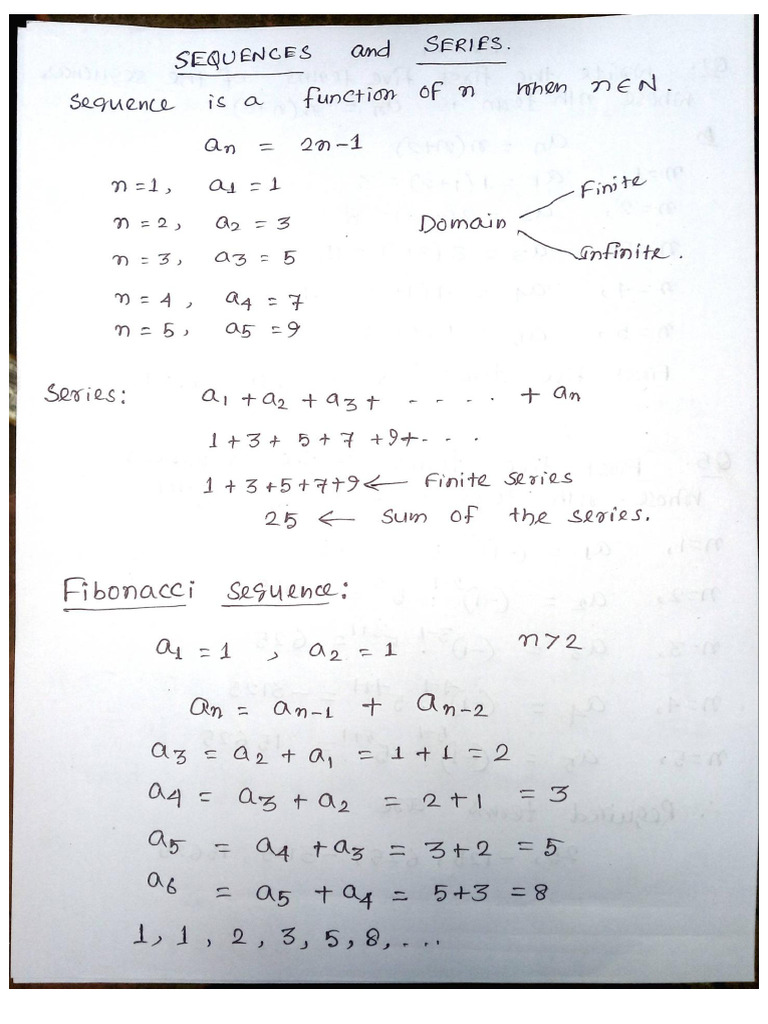 SEQUENCES and SERIES.
Sequence is a function of n when n∈N.
an = 2n-1
n=1, a1 = 1
n = 2, a2 = 3
n = 3, a3 = 5
n = 4, a4 = 7
n = 5, a5 = 9
Finite
Domain
Infinite.
Series: a1 + a2 + a3 + - - - . . + an
1 + 3 + 5 + 7 + 9 + - . .
1 + 3 + 5 + 7 + 9 ← Finite series
25 ← Sum of the series.
Fibonacci sequence:
a1 = 1 , a2 = 1 n>2
an = an-1 + an-2
a3 = a2 + a1 = 1 + 1 = 2
a4 = a3 + a2 = 2 + 1 = 3
a5 = a4 + a3 = 3 + 2 = 5
a6 = a5 + a4 = 5+3 = 8
1, 1, 2, 3, 5, 8, . . .